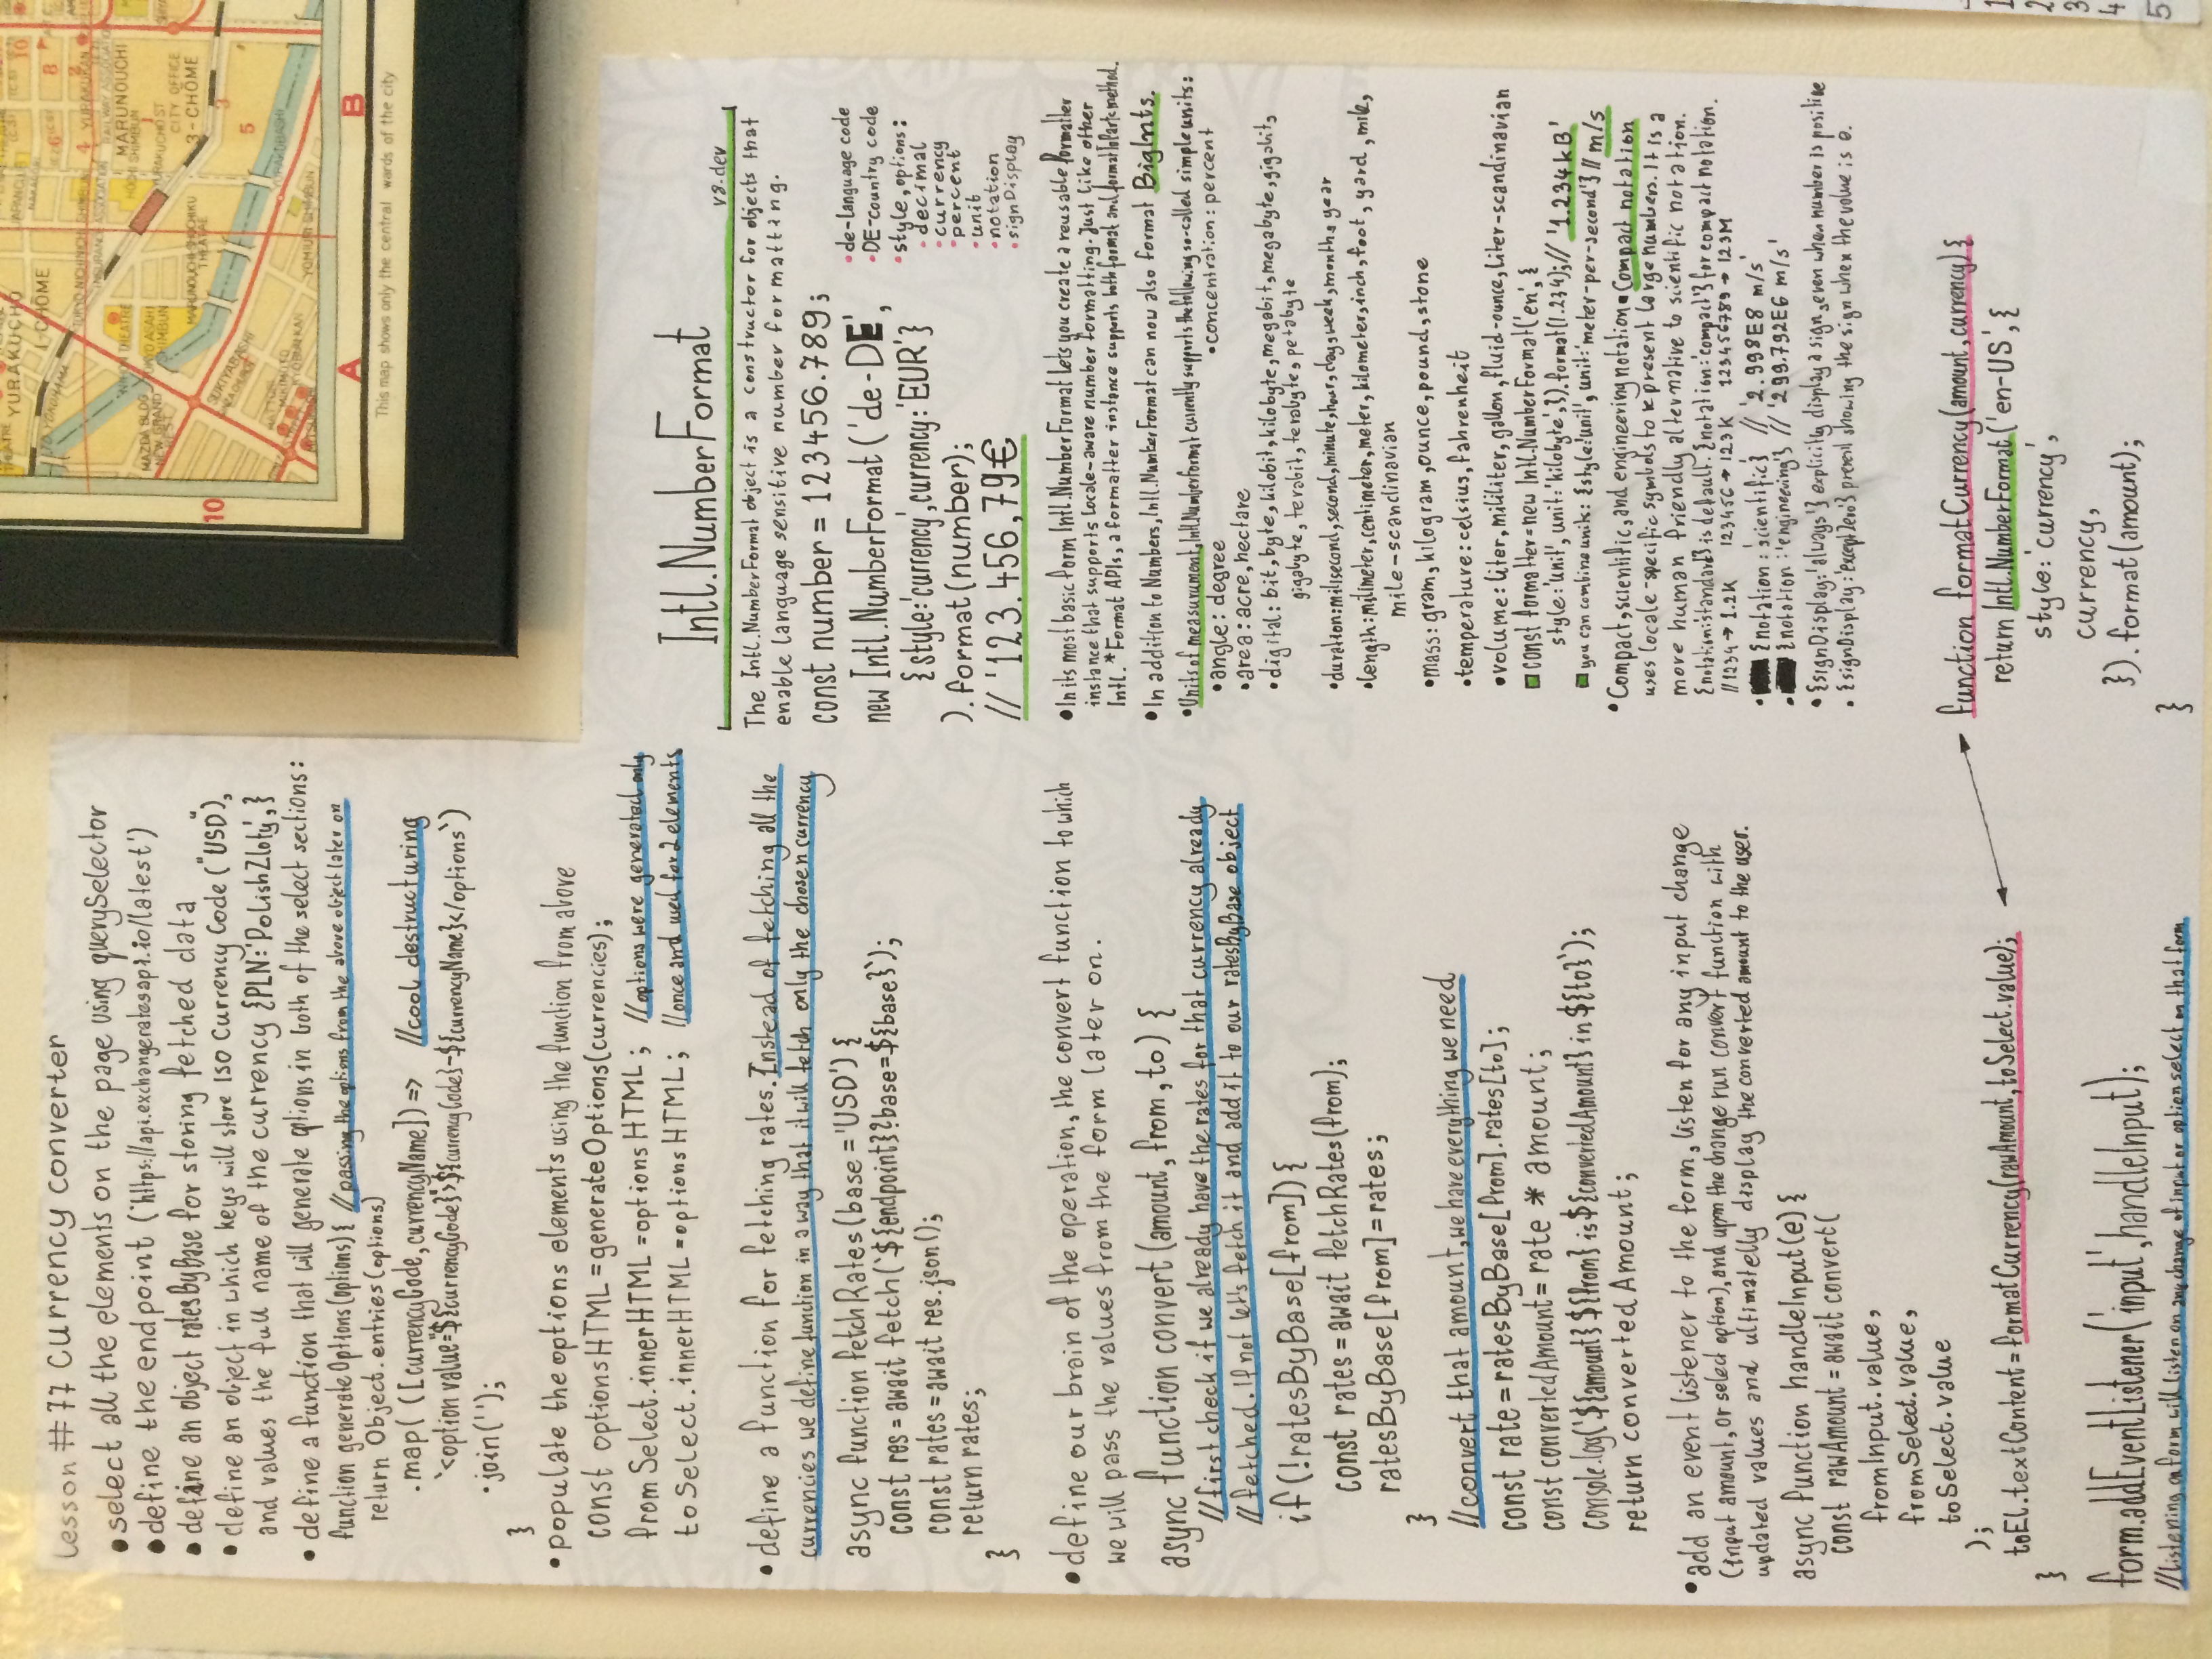 Lesson #77 Currency converter
• select all the elements on the page using querySelector
• define the endpoint ('https://api.exchangeratesapi.io/latest')
• define an object ratesByBase for storing fetched data
• define an object in which keys will store ISO Currency Code ("USD"),
and values the full name of the currency {PLN:'PolishZloty',}
• define a function that will generate options in both of the select sections:
function generateOptions(options) { //passing the options from the above object later on
return Object.entries(options)
.map( ([currencyCode,currencyName]) => //cool destructuring
`<option value="${currencyCode}">${currencyCode}-${currencyName}</options`)
.join('');
}
• populate the options elements using the function from above
const optionsHTML = generateOptions(currencies);
fromSelect.innerHTML = optionsHTML; //options were generated only
toSelect.innerHTML = optionsHTML; //once and used for 2 elements
• define a function for fetching rates. Instead of fetching all the
currencies we define function in a way that it will fetch only the chosen currency
async function fetchRates(base = 'USD') {
const res = await fetch(`${endpoint}?base=${base}`);
const rates = await res.json();
return rates;
}
• define our brain of the operation, the convert function to which
we will pass the values from the form later on.
async function convert (amount, from, to) {
//first check if we already have the rates for that currency already
//fetched. If not let's fetch it and add it to our ratesByBase object
if (!ratesByBase[from]) {
const rates = await fetchRates(from);
ratesByBase[from] = rates;
}
//convert that amount, we have everything we need
const rate = ratesByBase[from].rates[to];
const convertedAmount = rate * amount;
console.log(`${amount} ${from} is ${convertedAmount} in ${to}`);
return convertedAmount;
• add an event listener to the form, listen for any input change
(input amount, or select option), and upon the change run convert function with
updated values and ultimatelly display the converted amount to the user.
async function handleInput(e) {
const rawAmount = await convert(
fromInput.value,
fromSelect.value,
toSelect.value
);
toEl.textContent = formatCurrency(rawAmount, toSelect.value);
}
form.addEventListener('input', handleInput);
//listening on form will listen on any change of input or option select on that form
Intl.NumberFormat
v8.dev
The Intl.NumberFormat object is a constructor for objects that
enable language sensitive number formatting.
const number = 123456.789;
new Intl.NumberFormat ('de-DE',
{style:'currency', currency:'EUR'}
).format(number);
// '123.456,79€
• de-language code
• DE-country code
• style, options:
• decimal
• currency
• percent
• unit
• notation
• signDisplay
• In its most basic form Intl.NumberFormat lets you create a reusable formatter
instance that supports locale-aware number formatting. Just like other
Intl.*Format APIs, a formatter instance supports both format and formatToParts method.
• In addition to Numbers, Intl.NumberFormat can now also format BigInts.
• Units of measurument, Intl.NumberFormat currently supports the following so-called simple units:
• angle: degree • concentration: percent
• area: acre, hectare
• digital: bit, byte, kilobit, kilobyte, megabit, megabyte, gigabit,
gigabyte, terabit, terabyte, petabyte
• duration: milisecond, second, minute, hour, day, week, month, year
• length: milimeter, centimeter, meter, kilometer, inch, foot, yard, mile,
mile-scandinavian
• mass: gram, kilogram, ounce, pound, stone
• temperature: celsius, fahrenheit
• volume: liter, mililiter, gallon, fluid-ounce, liter-scandinavian
const formatter = new Intl.NumberFormat('en', {
style:'unit', unit:'kilobyte',}).format(1.234); // '1.234kB'
you can combine units: {style:'unit', unit:'meter-per-second'} // m/s
• Compact, scientific, and engineering notation. Compact notation
uses locale-specific symbols to represent large numbers. It is a
more human friendly alternative to scientific notation.
{notation:'standard'} is default. {notation:'compact'} for compact notation.
//1234 → 1.2K 123456 → 123K 123456789 → 123M
• {notation:'scientific'} // '2.998E8 m/s'
• {notation:'engineering'} // '299.792E6 m/s'
• {signDisplay:'always'} explicitly display a sign, even when number is positive
• {signDisplay:'exceptZero'} prevent showing the sign when the value is 0.
function formatCurrency(amount, currency) {
return Intl.NumberFormat ('en-US', {
style: 'currency',
currency,
}).format(amount);
}
YURAKUCHO
1-CHŌME
TO YOKOHAMA
TOKYO NICHINICHI SHIMBUN
INSURANCE ASSOCIATION
YURAKUKAN
RAILWAY ASSOCIATION
MARUNOUCHI
HOCHI SHIMBUN
MAZDA BLDG
NEW GRAND
TOKYO ASAHI
SHIMBUN
YURAKUCHO ST
CITY OFFICE
3-CHŌME
MARUNOUCHI SHOCHIKU
THEATRE
SUKIYABASHI
HATTORI
MIKIMOTO
KYOBUNKAN
YOMIURI SHIMBUN
10
10
8
6
4
2
3
5
A
B
This map shows only the central wards of the city
1
2
3
4
5